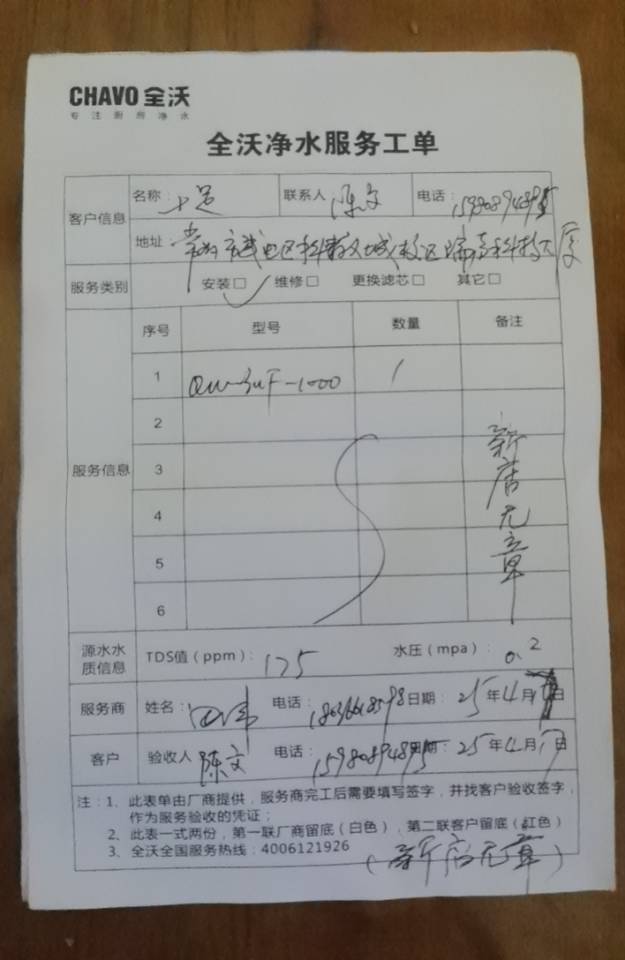 CHAVO 全沃
专注厨房净水
全沃净水服务工单
客户信息
名称： 联系人 陈文 电话：
地址 常州市武进区科教城
服务类别 安装□ 维修□ 更换滤芯□ 其它□
序号 型号 数量 备注
服务信息
1 1
2
3
4
5
6
新店无章
源水水质信息 TDS值（ppm）： 175 水压（mpa）： 0.2
服务商 姓名： 电话： 日期： 25年4月 日
客户 验收人 陈文 电话： 日期：25年4月17日
注：1、此表单由厂商提供，服务商完工后需要填写签字，并找客户验收签字，
作为服务验收的凭证；
2、此表一式两份，第一联厂商留底（白色），第二联客户留底（红色）
3、全沃全国服务热线：4006121926
（新店无章）